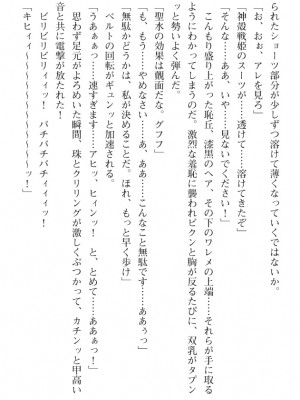 られたショーツ部分が少しずつ溶けて薄くなっていくではないか。
「お、おぉ、アレを見ろ」
「神殻戦姫のスーツが……透けて……溶けてきたぞ」
「そんな……ああ、いや……見ないでください！」
　こんもり盛り上がった恥丘、漆黒のヘア、その下のワレメの上端……それらが手に取る
ようにわかってしまうのだ。激烈な羞恥に襲われビクンと胸が反るたびに、双乳がタプン
ッと勢いよく弾んだ。
「聖水の効果は覿面だな。グフフ」
「も、もう……やめなさい……あ、ああ……こんなこと無駄です……ああぅっ」
「無駄かどうかは、私が決めることだ。ほれ、もっと早く歩け」
　ベルトの回転がギュンッと加速される。
「うあぁぁっ……速すぎます……アヒッ、ヒィンッ！　と、とめて……ああぁっ！」
　思わず足元がよろめいた瞬間、珠とクリリングが激しくぶつかって、カチンッと甲高い
音と共に電撃が放たれた！
　ビリビリビリィィィッ！　バチバチバチィィィッ！
「キヒィィ～～～～～～～～～～～～ッ！」